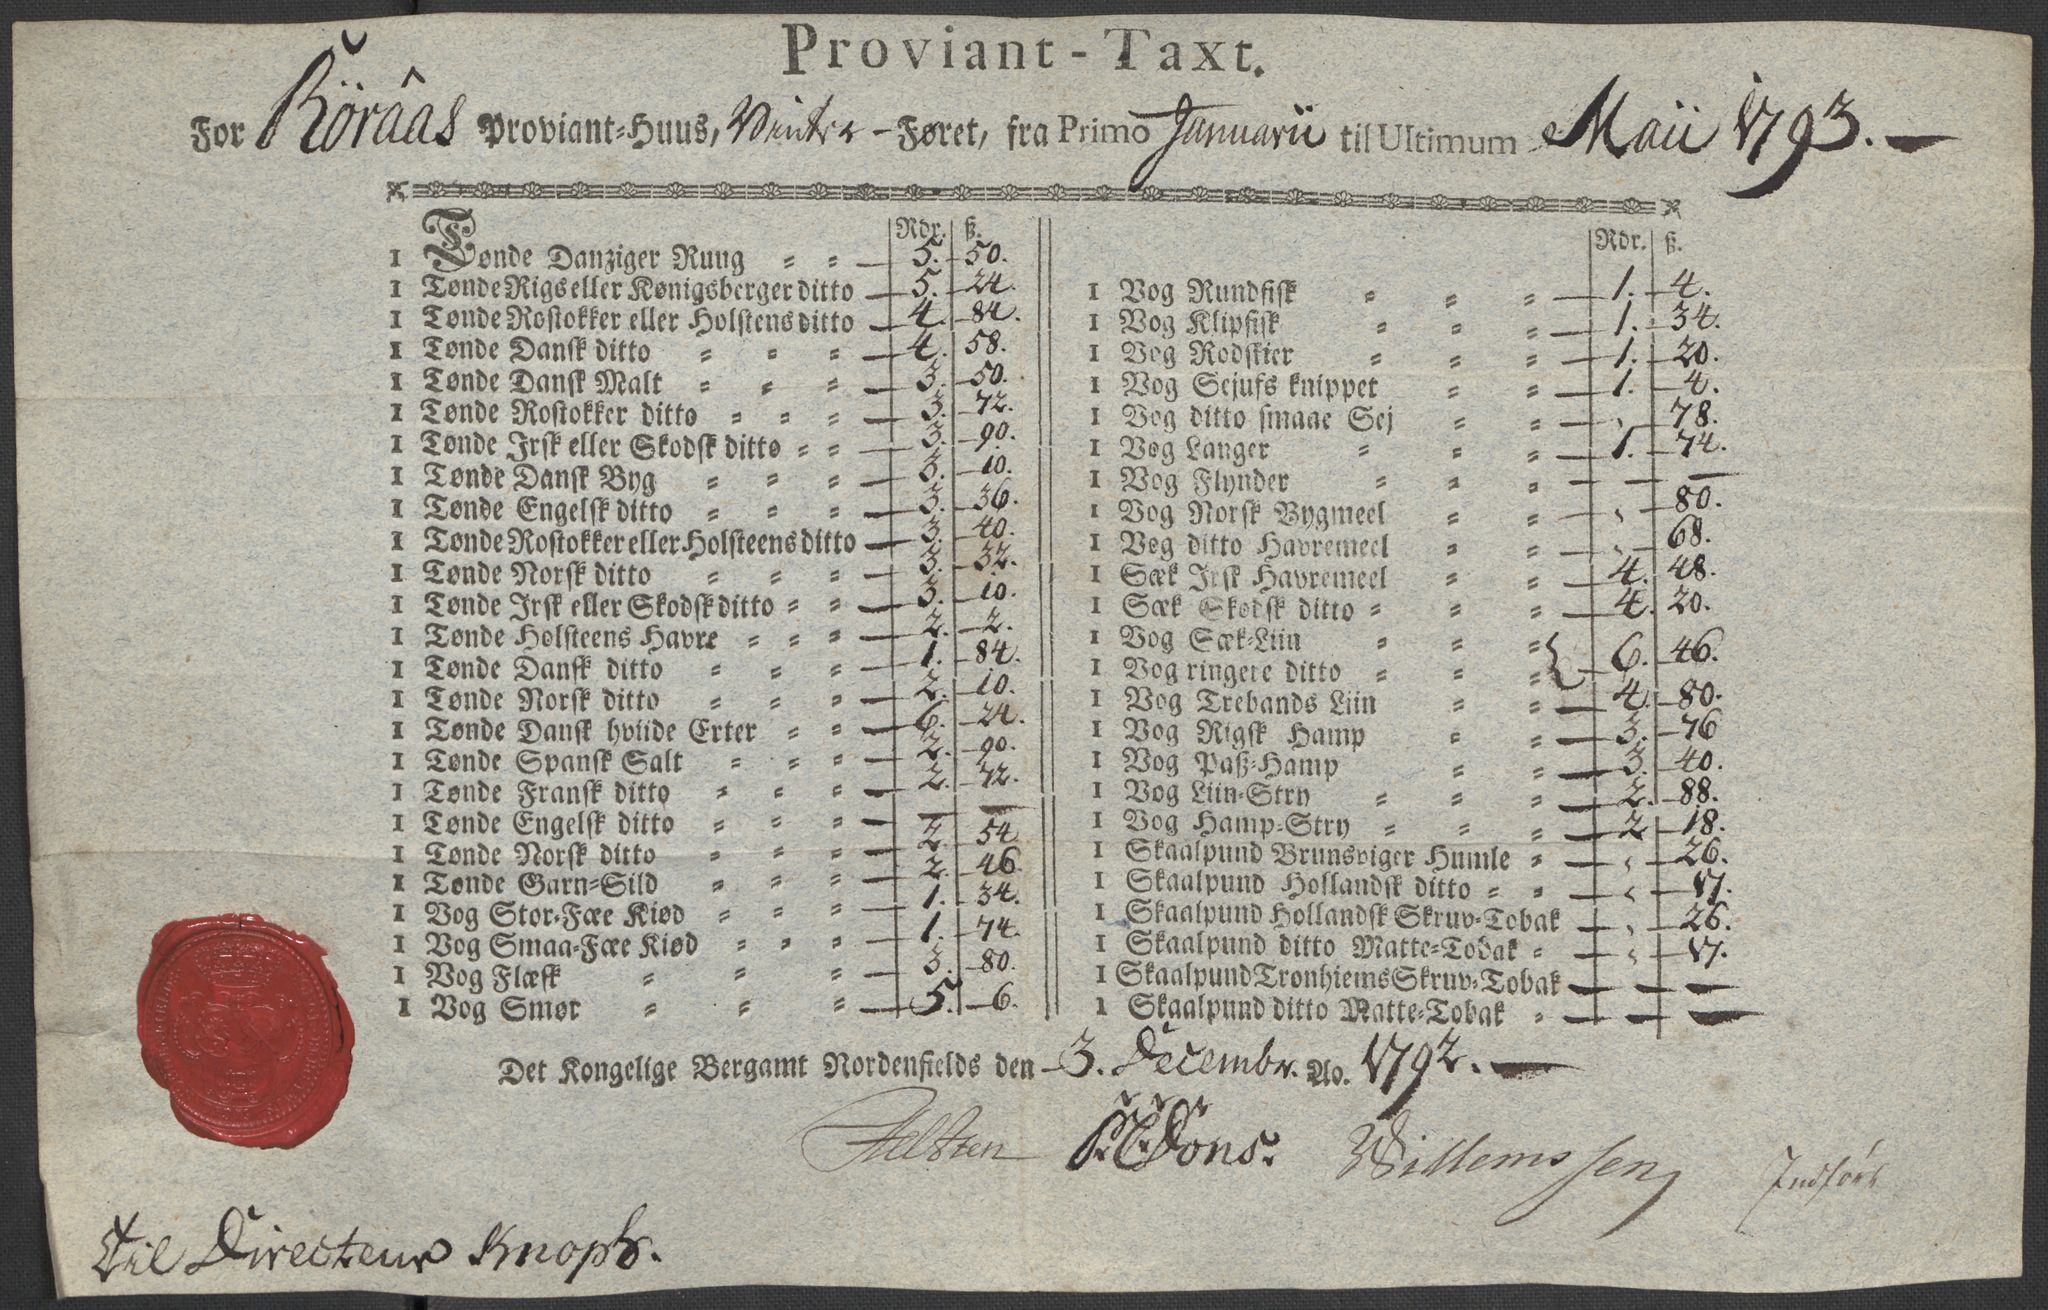 Proviant-Taxt.
For Röraas Proviant-Huus, Vinter-Føret, fra Primo Januarii til Ultimum Maii 1793.
Rdr. ß.
1 Tønde Danziger Rung 5. 50.
1 Tønde Rigs eller Kønigsberger ditto 5. 24.
1 Tønde Rostokker eller Holstens ditto 4. 84.
1 Tønde Dansk ditto 4. 58.
1 Tønde Dansk Malt 3. 50.
1 Tønde Rostokker ditto 3. 72.
1 Tønde Irsk eller Skodsk ditto 3. 90.
1 Tønde Dansk Byg 3. 10.
1 Tønde Engelsk ditto 3. 36.
1 Tønde Rostokker eller Holsteens ditto 3. 40.
1 Tønde Norsk ditto 3. 32.
1 Tønde Irsk eller Skodsk ditto 3. 10.
1 Tønde Holsteens Havre 2. 2.
1 Tønde Dansk ditto 1. 84.
1 Tønde Norsk ditto 2. 10.
1 Tønde Dansk hviide Erter 6. 24.
1 Tønde Spansk Salt 2. 90.
1 Tønde Fransk ditto 2. 72.
1 Tønde Engelsk ditto — —
1 Tønde Norsk ditto 2. 54.
1 Tønde Garn-Sild 2. 46.
1 Vog Stor-Fæe Kiød 1. 34.
1 Vog Smaa-Fæe Kiød 1. 74.
1 Vog Flæsk 3. 80.
1 Vog Smør 5. 6.
Rdr. ß.
1 Vog Rundfisk 1. 4.
1 Vog Klipfisk 1. 34.
1 Vog Rodskier 1. 20.
1 Vog Sejufs knippet 1. 4.
1 Vog ditto smaae Sej " 78.
1 Vog Langer 1. 74.
1 Vog Flynder — —
1 Vog Norsk Bygmeel " 80.
1 Vog ditto Havremeel " 68.
1 Sæk Irsk Havremeel 4. 48.
1 Sæk Skodsk ditto 4. 20.
1 Vog Sæk-Liin
1 Vog ringere ditto } 6. 46.
1 Vog Trebands Liin 4. 80.
1 Vog Rigsk Hamp 3. 76
1 Vog Paß-Hamp 3. 40.
1 Vog Liin-Stry 2. 88.
1 Vog Hamp-Stry 2 18.
1 Skaalpund Brunsviger Humle " 26.
1 Skaalpund Hollandsk ditto " 17.
1 Skaalpund Hollandsk Skruv-Tobak " 26.
1 Skaalpund ditto Matte-Tobak " 17.
1 Skaalpund Tronhiems Skruv-Tobak — —
1 Skaalpund ditto Matte-Tobak — —
Det Kongelige Bergamt Nordenfields den 3. Decembr. Ao. 1792.
Dons. Willemssen
Til Directeur Knoph.